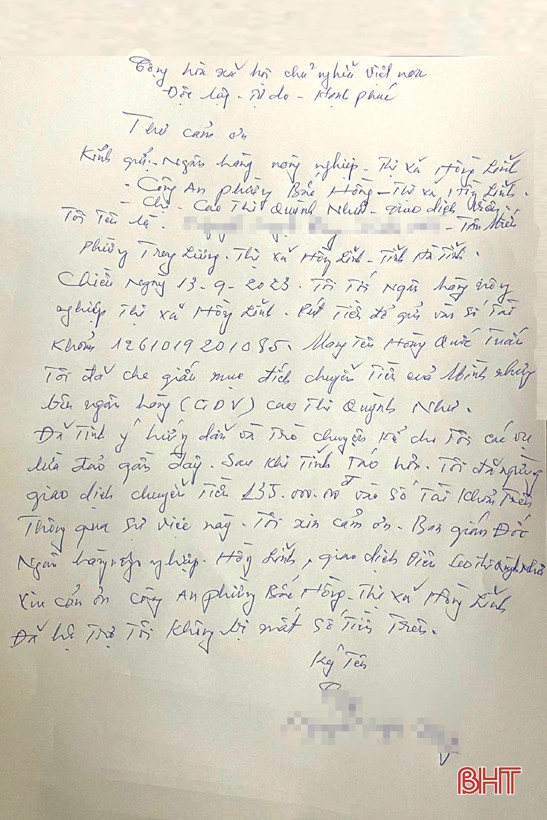 Cộng hòa xã hội chủ nghĩa Việt nam
Độc lập - Tự do - Hạnh phúc
Thư cảm ơn
Kính gửi - Ngân hàng nông nghiệp - Thị xã Hồng Lĩnh
- Công An phường Bắc Hồng - Thị xã Hồng Lĩnh.
- Chị - Cao Thị Quỳnh Như - giao dịch viên
Tôi Tên là - Tân Miếu
Phường Trung Lương - Thị xã Hồng Lĩnh - Tỉnh Hà Tĩnh.
Chiều ngày 13-9-2023. Tôi Tới Ngân hàng nông
nghiệp Thị xã Hồng Lĩnh. Rút Tiền để gửi vào Số Tài
Khoản 1261019201085. Mang Tên Hồng Quốc Tuấn
Tôi đã che giấu mục đích chuyển Tiền của Mình nhưng
bên ngân hàng (GDV) Cao Thị Quỳnh Như.
Đã Tinh ý hướng dẫn và Trò chuyện Kể cho Tôi các vụ
lừa đảo gần đây. Sau Khi Tỉnh Táo hơn. Tôi đã ngừng
giao dịch chuyển Tiền 135.000.000đ vào Số Tài Khoản Trên
Thông qua Sự việc này. Tôi xin cảm ơn - Ban giám Đốc
Ngân hàng nghiệp. Hồng Lĩnh, giao dịch Viên Cao Thị Quỳnh Như
Xin cảm ơn Công An phường Bắc Hồng - Thị xã Hồng Lĩnh
Đã hỗ Trợ Tôi Không bị mất Số Tiền Trên.
Ký Tên
BHT